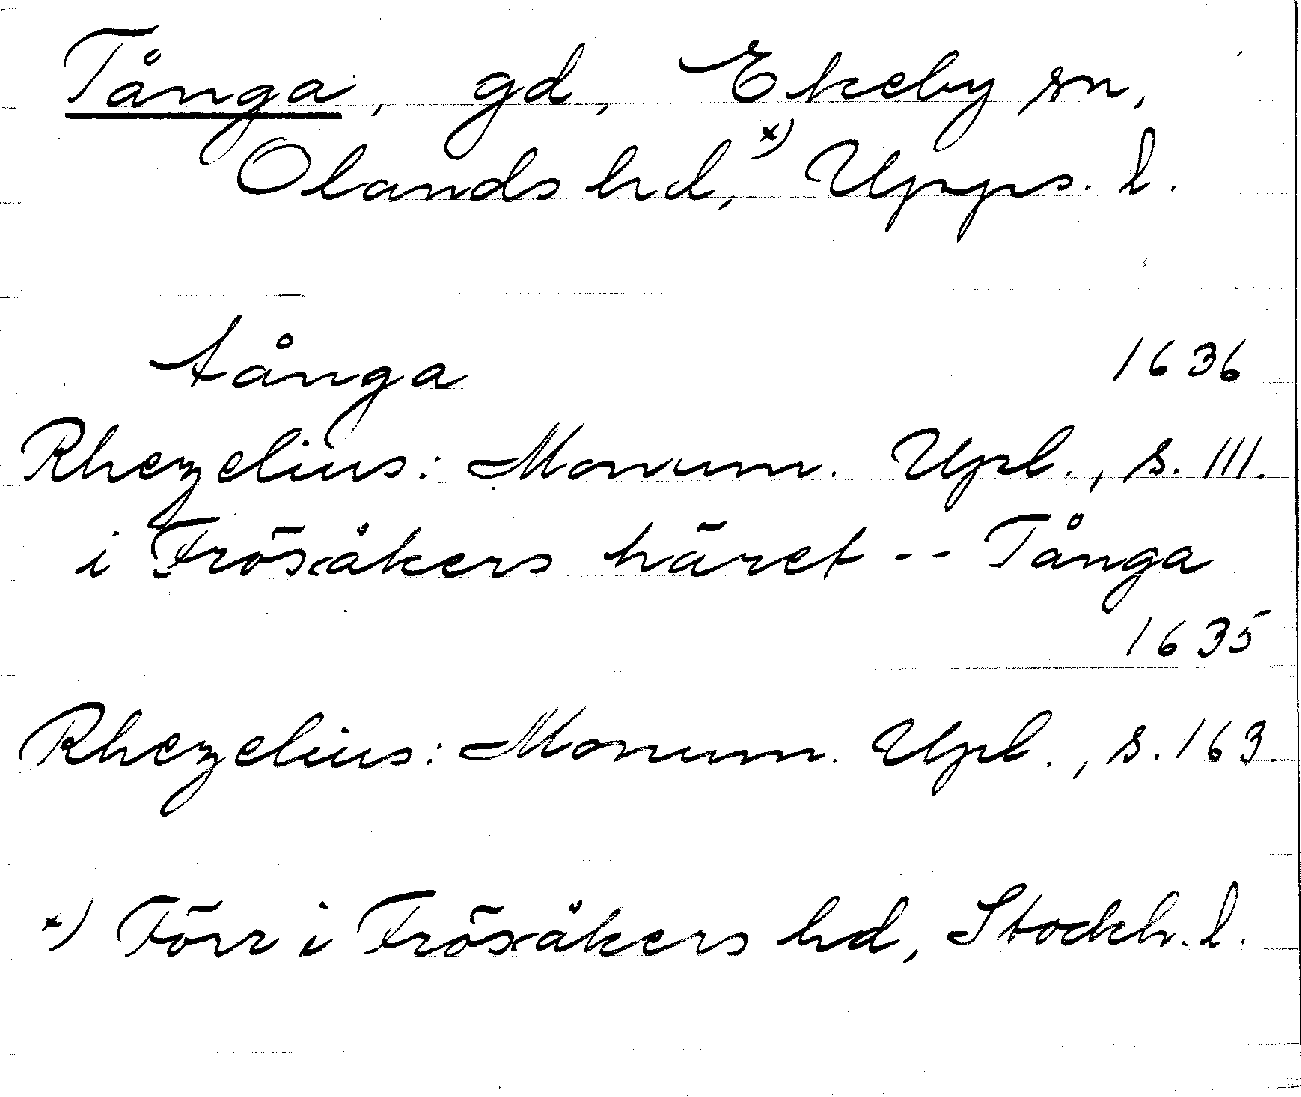 Tånga, gd, Ekeby sn,
Olands hd,*) Upps. l.
tånga 1636
Rhezelius: Monum. Upl., s. 111.
i Frösåkers häret -- Tånga
1635
Rhezelius: Monum. Upl., s. 163.
*) Förr i Frösåkers hd, Stockh. l.